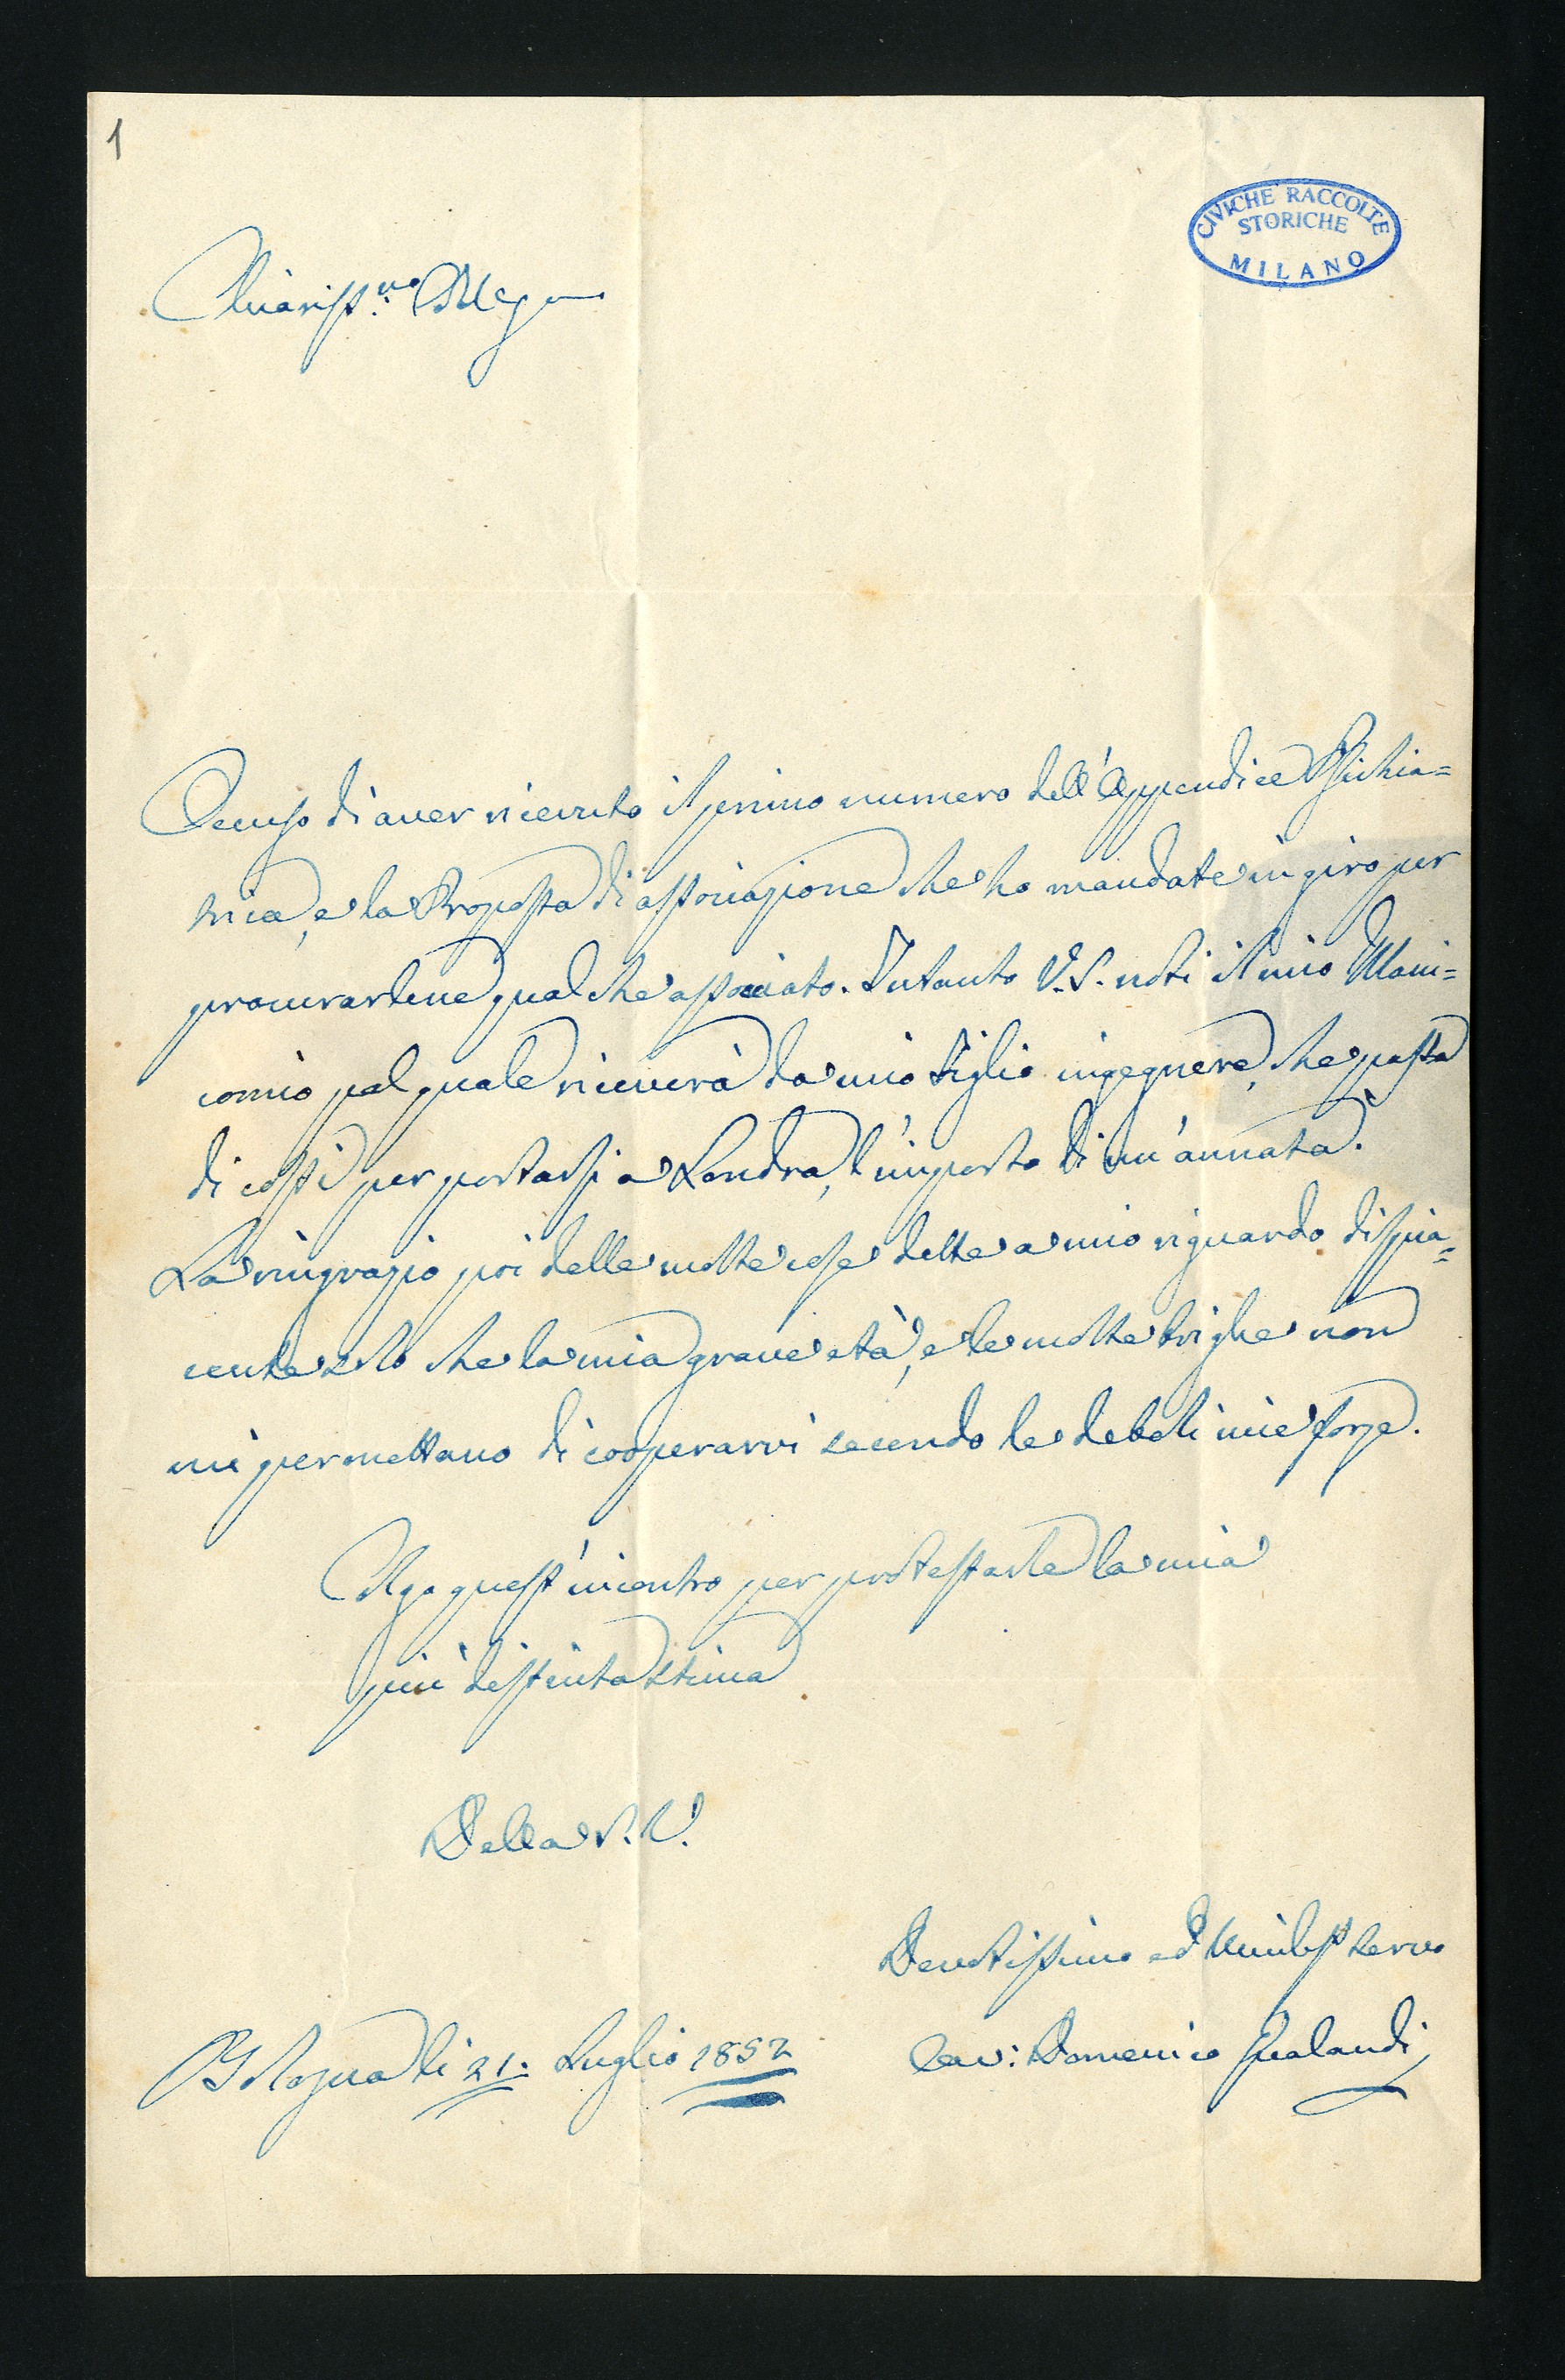 1
CIVICHE RACCOLTE
STORICHE
MILANO
Chiariss.mo Collega
Accuso di aver ricevuto il primo numero dell'Appendice Psichia=
trica, e la Proposta di associazione che ho mandate in giro per
procurarlene qualche associato. Intanto V.S. noti il mio Mani=
comio pel quale riceverà da mio Figlio ingegnere, che passa
di costì per portarsi a Londra, l'importo di un'annata.
La ringrazio poi delle molte cose dette a mio riguardo dispia=
cente solo che la mia grave età, e le molte brighe non
mi permettano di cooperarvi secondo le deboli mie forze.
Colgo quest'incontro per protestarle la mia
più distinta stima
Della S.V.
Devotissimo ed Umiless servo
Cav: Domenico Gualandi
Bologna li 21. Luglio 1852